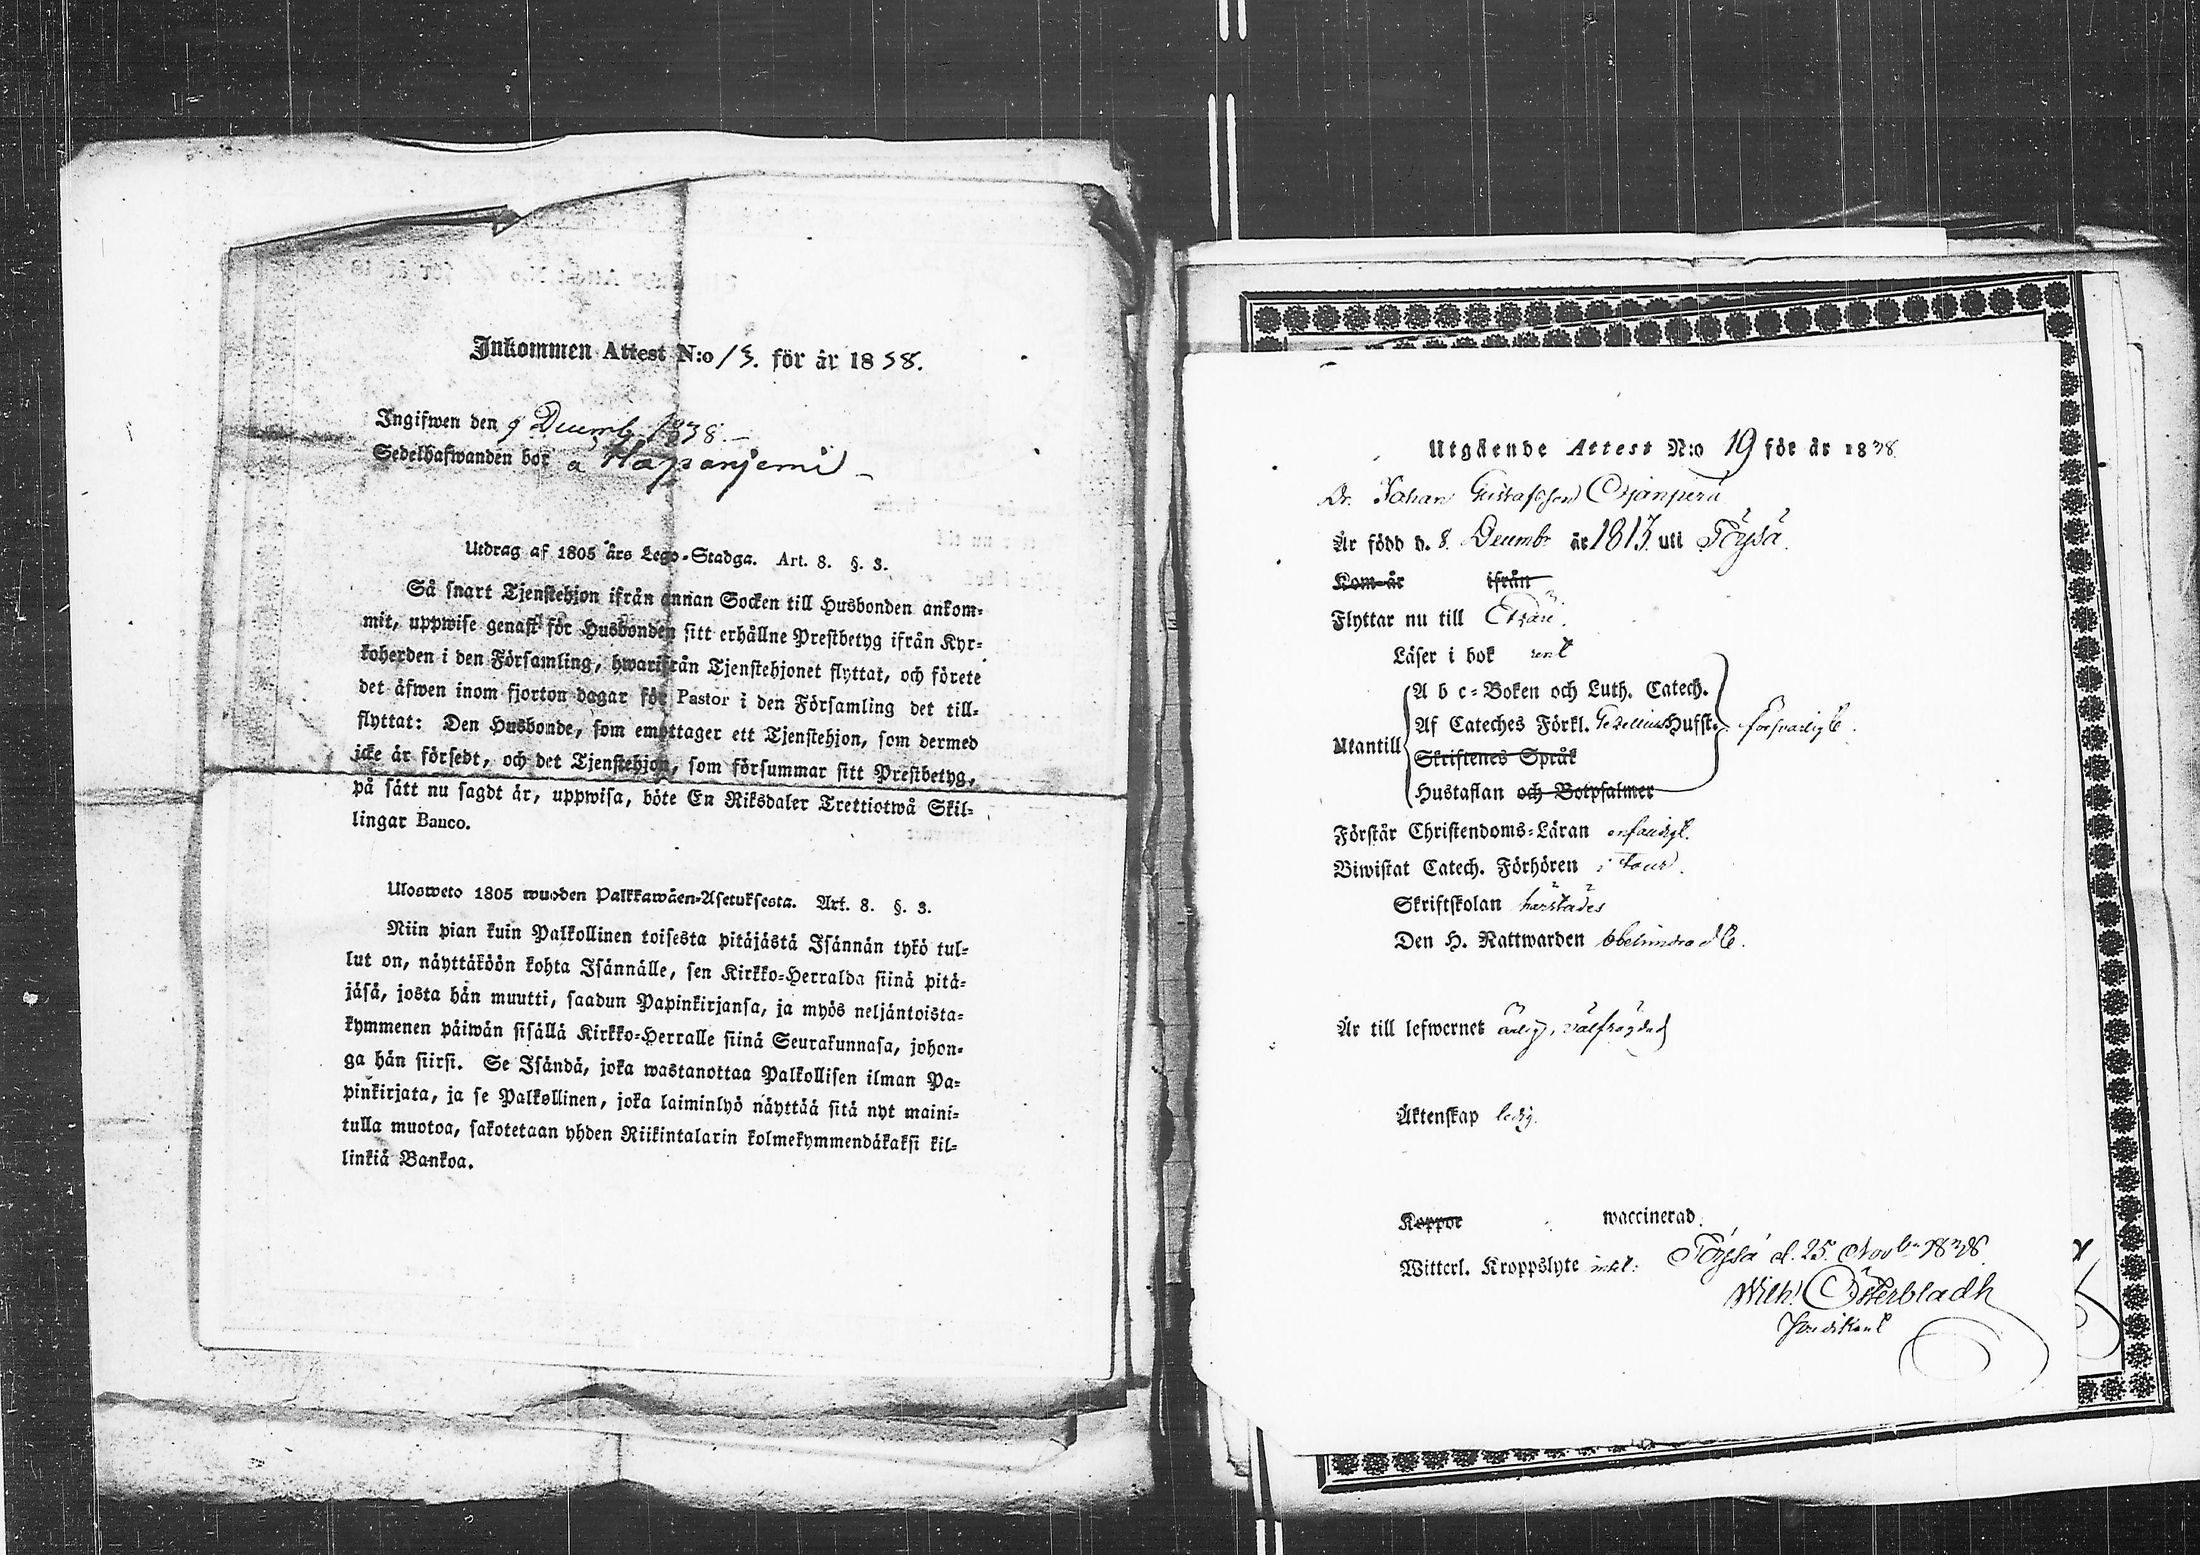 Inkommen Attest N:o 13. för år 1838.
Ingifwen den 9 Decemb. 1838.
Sedelhafwanden bor å Hapanjemi
Utdrag af 1805 års Lego-Stadga. Art. 8. §. 3.
Så snart Tjenstehjon ifrån annan Socken till Husbonden ankom-
mit, uppwise genast för Husbonden sitt erhållne Prestbetyg ifrån Kyr-
koherden i den Församling, hwarifrån Tjenstehjonet flyttat, och förete
det äfwen inom fjorton dagar för Pastor i den Församling det till-
flyttat: Den Husbonde, som emottager ett Tjenstehjon, som dermed
icke är försedt, och det Tjenstehjon, som försummar sitt Prestbetyg,
på sätt nu sagdt är, uppwisa, böte En Riksdaler Trettiotwå Skil-
lingar Banco.
Ulosweto 1805 wuoden Palkkawäen-Asetuksesta. Art. 8. §. 3.
Niin pian kuin Palkollinen toisesta pitäjästä Isännän tykö tul-
lut on, näyttäköön kohta Isännälle, sen Kirkko-Herralda siinä pitä-
jäsä, josta hän muutti, saadun Papinkirjansa, ja myös neljäntoista-
kymmenen päiwän sisällä Kirkko-Herralle siinä Seurakunnasa, johon-
ga hän siirsi. Se Isändä, joka wastanottaa Palkollisen ilman Pa-
pinkirjata, ja se Palkollinen, joka laiminlyö näyttää sitä nyt maini-
tulla muotoa, sakotetaan yhden Riikintalarin kolmekymmendäkaksi kil-
linkiä Bankoa.
Utgående Attest N:o 19 för år 1838.
Dr. Johan Gustafsson Ojanperä
Är född d. 8. Decembr år 1813. uti Töysä.
Kom år ifrån
Flyttar nu till Etzäri.
Läser i bok rent
Utantill
A b c-Boken och Luth. Catech.
Af Cateches Förkl. Gezelius Hufst. försvarligt.
Skriftenes Språk
Hustaflan och Botpsalmer
Förstår Christendoms-Läran enfaldigt.
Biwistat Catech. Förhören i tour.
Skriftskolan härstädes
Den H. Nattwarden obehindradt.
Är till lefwernet ärlig, välfrägdad
Äktenskap ledig.
Koppor waccinerad.
Witterl. Kroppslyte intet. Töysä d. 25. Novbr 1838.
Wilh. Österbladh
Predikant